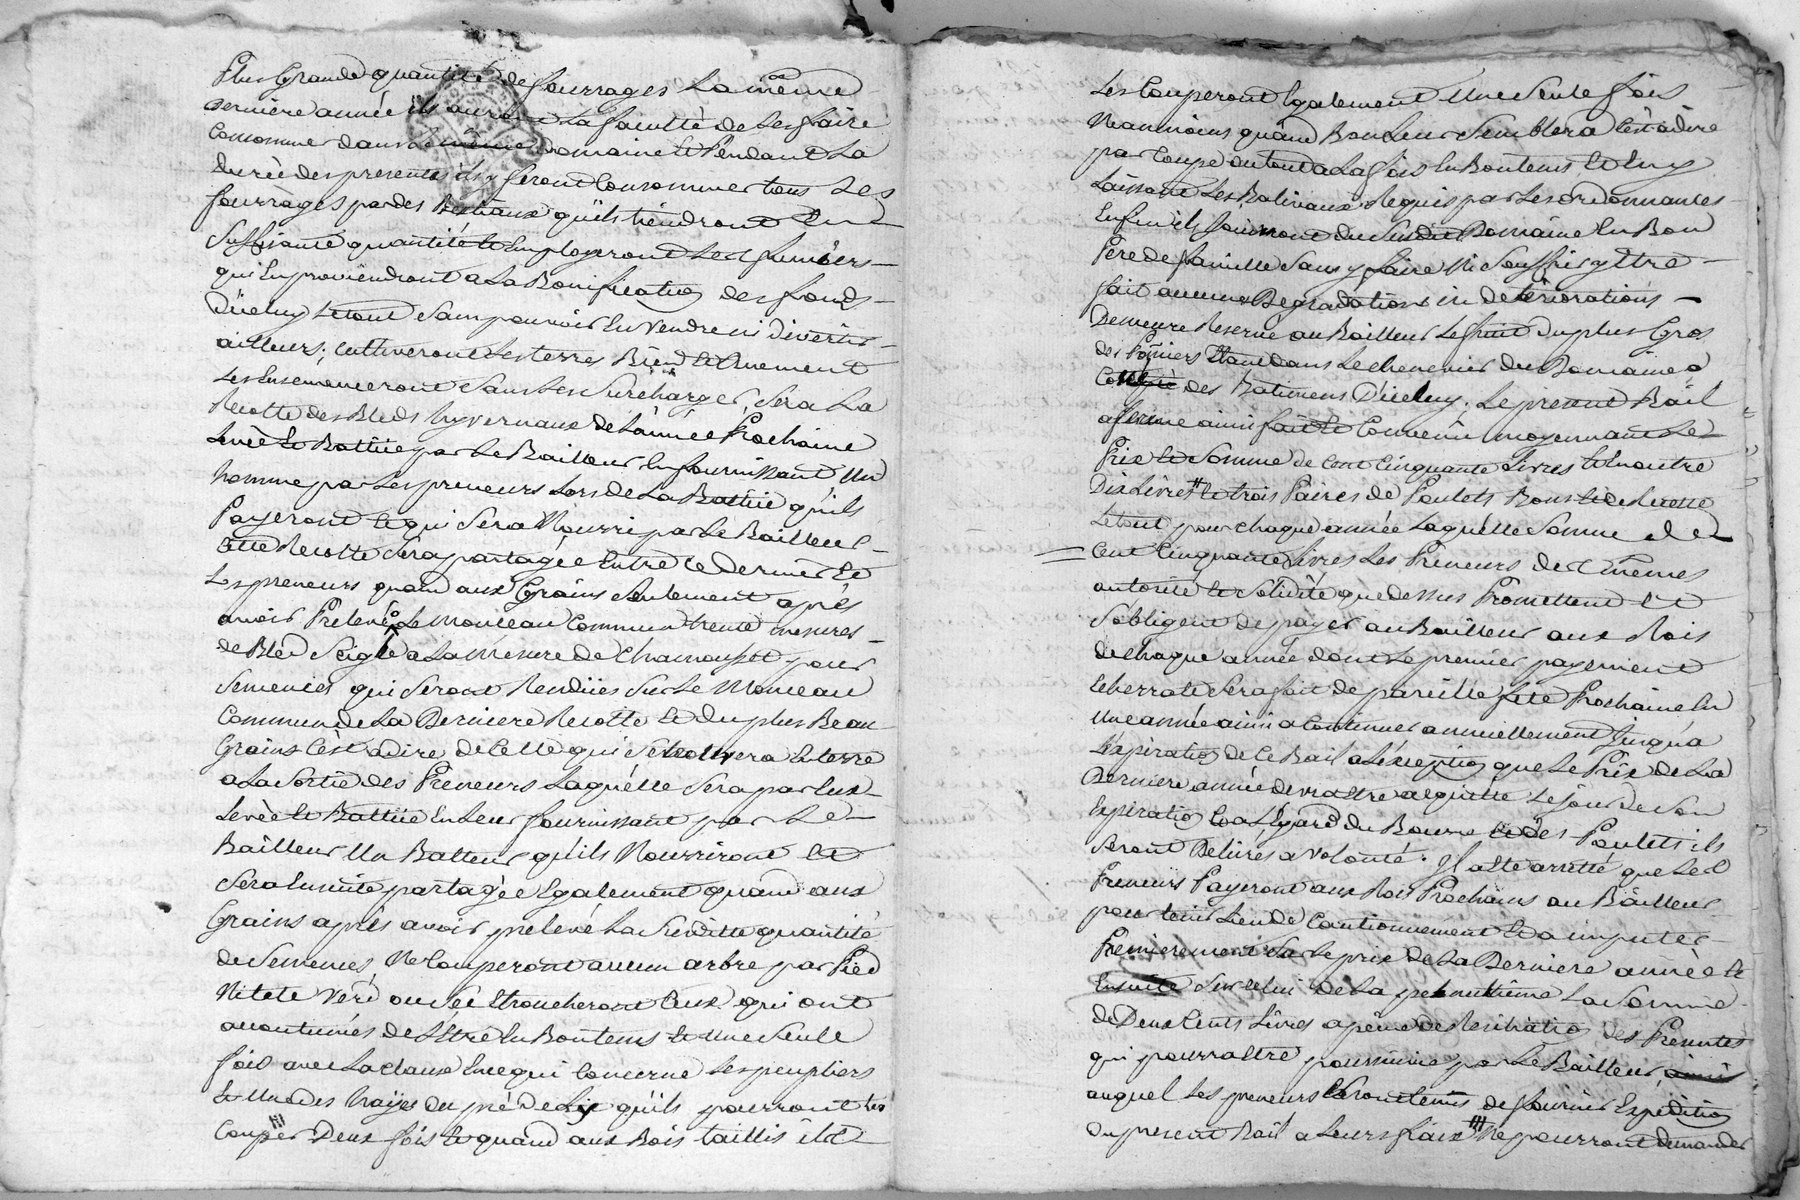 Plus Grande quantité de fourrages La même
derniere année ils auront La faculté de Les faire
Consommer dans le même Domaine et Pendant La
durée des presentes ils y feront Consommer tous Les
fourrages par des Bestiaux qu'ils tiendront En
Suffisante quantité et Employeront Les fumiers
qui En proviendront a La Bonification des fonds
D'iceluy Le tout Sans pouvoir En vendre ni Divertir
ailleurs; Cultiveront Les terres Bien et Duement
Les Ensemenceront Sans Les Surcharger, Sera La
Recolte des Bleds hyvernaux de L'année Prochaine
Levée et Battüe par Le Bailleur En fournissant Un
homme par Les preneurs Lors de La Battüe qu'ils
Payeront et qui Sera Nourri par Le Bailleur
Cette Recolte Sera partagée Entre ce Dernier et
Les preneurs quand aux Grains Seulement après
avoir Prelevé Le Monceau Commun trente mesures
de Bled Seigle a La Mesure de Chamousset pour
Semences qui Seront Rendües Sur Le Monceau
Commun de La Derniere Recolte et Du plus Beau
Grains C'est a dire de Celle qui Se trouvera En terre
a La Sortie des Preneurs Laquelle Sera par Eux
Levée et Battüe En Leur fournissant par Le
Bailleur Un Batteur qu'ils Nourriront et
Sera Ensuite partagée Egalement quand aux
Grains après avoir prelevé La Susditte quantité
de Semences, Ne Couperont aucun arbre par Pied
Ni tete Verd ou Sec Etroncheront Ceux qui ont
accoutumés de L'être En Bontems et Une Seule
fois avec La clause En ce qui Concerne Les peupliers
et du pré qu'ils pourront Les
Couper Deux fois et quand aux Bois taillis ils
Les Couperont Egalement Une Seule fois
Neanmoins quand Bon Leur Semblera C'est a dire
par Coupe ou tout a La fois En Bontems et En y
Laissant Les Baliveaux Requis par Les ordonnances
Enfin ils Joüiront du Susdit Domaine En Bon
Père de famille Sans y faire Ni Souffrir y Etre
fait aucunes Degradations ni deteriorations
Demeure Reservé au Bailleur Le fruit Du plus Gros
des Etant dans Le Chenevier du Domaine a
Coté des Batimens D'iceluy; Le present Bail
a ferme ainsi fait et Convenu moyennant Le
Prix et Somme de Cent Cinquante Livres et Enoutre
Dix Livres et trois Paires de Poulets Bons et de Recette
Le tout pour chaque année Laquelle Somme de
Cent Cinquante Livres Les Preneurs des mêmes
autorité et Solidité que dessus Promettent et
S'obligent de payer au Bailleur aux Rois
de chaque année dont Le premier payement
Echerra et Sera fait de pareille fête Prochaine En
Une année ainsi a Continuer annuellement Jusqu'a
L'expiration de Ce Bail a L'exception que Le Prix de La
Derniere année devra Etre acquitté Le jour de Son
Expiration et a L'égard du Beurre et des Poulets ils
Seront Delivrés a Volonté. Il a Eté arretté que Les
Preneurs Payeront aux Rois Prochains au Bailleur
pour tenir Lieu de Cautionnement et a imputer
Premierement Sur Le prix de La Derniere année et
Ensuite Sur celui de La penultième La Somme
de Deux Cents Livres a peine de Resiliation des Presentes
qui pourra Etre poursuivie par Le Bailleur,
auquel Les preneurs Seront tenus de fournir Expedition
du present Bail a Leurs fraix Ne pourront demander